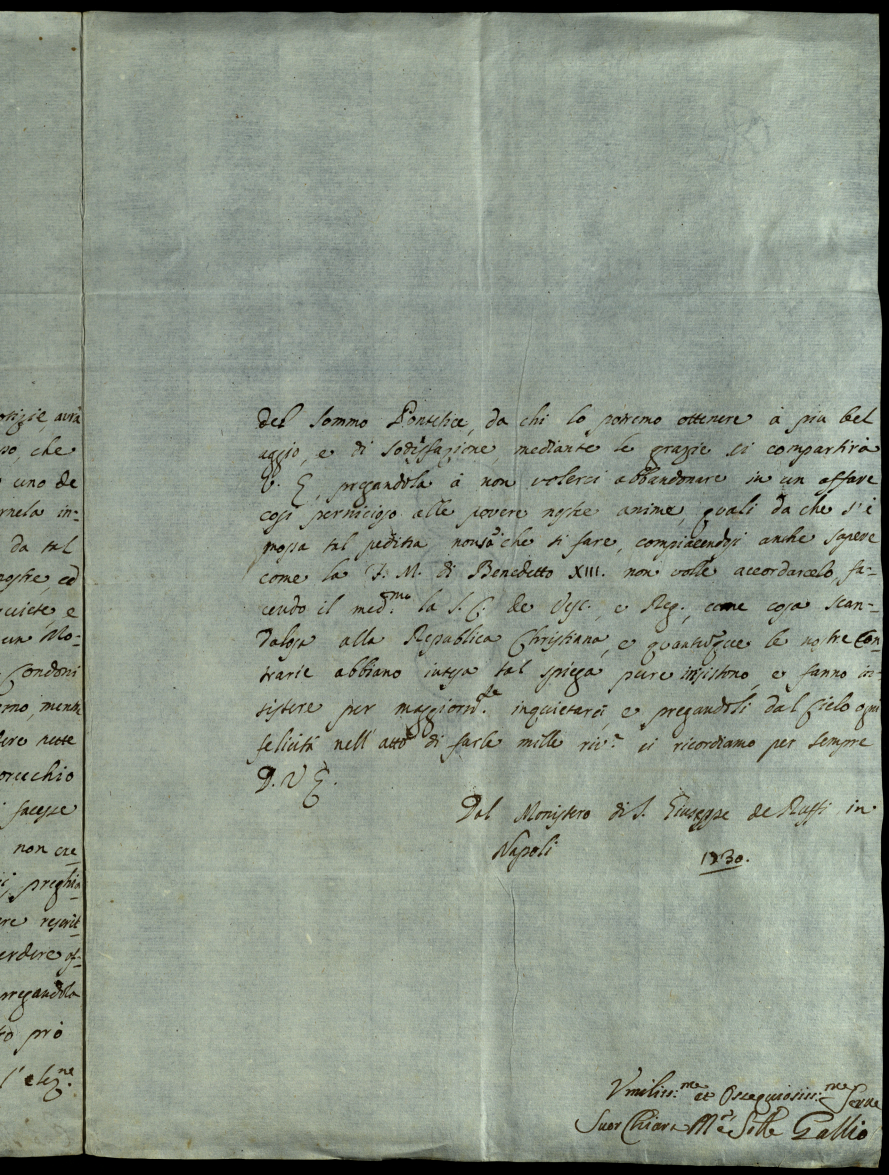 otizie avrà
so, che
uno de
rnela in=
da tal
egre, ed
quiete, e
un Mo=
Condoni
rno, mentre
dere nette
orecchio
facesse
non cre=
preghia
re rescrit=
erdere of=
pregandola
to prò
l'elez.ne
del Sommo Pontefice, da chi lo potremo ottenere à piu bel
aggio, e di sodisfazione, mediante le grazie ci compartirà
V. E., pregandola à non volerci abbandonare in un affare
così pernicioso alle povere nostre anime, quali da che s'è
mossa tal pedina, non sà che si fare, compiacendosi anche sapere
come la F. M. di Benedetto XIII. non volle accordarcelo, fa=
cendo il med.mo la S. C. de Vesc., e Reg., come cosa scan=
dalosa alla Republica Christiana, e quantunque le nostre Con=
trarie abbiano intesa tal spiega pure insistono, e fanno in=
sistere per maggiorm.te inquietarci, e pregandoli dal Cielo ogni
felicità nell'atto di farle mille riv.e ci ricordiamo per sempre
D. V. E.
Dal Monistero di S. Giuseppe de Ruffi in
Napoli 1730.
Umiliss.me et Ossequiosiss.me Serve
Suor Chiara M.a Gallio